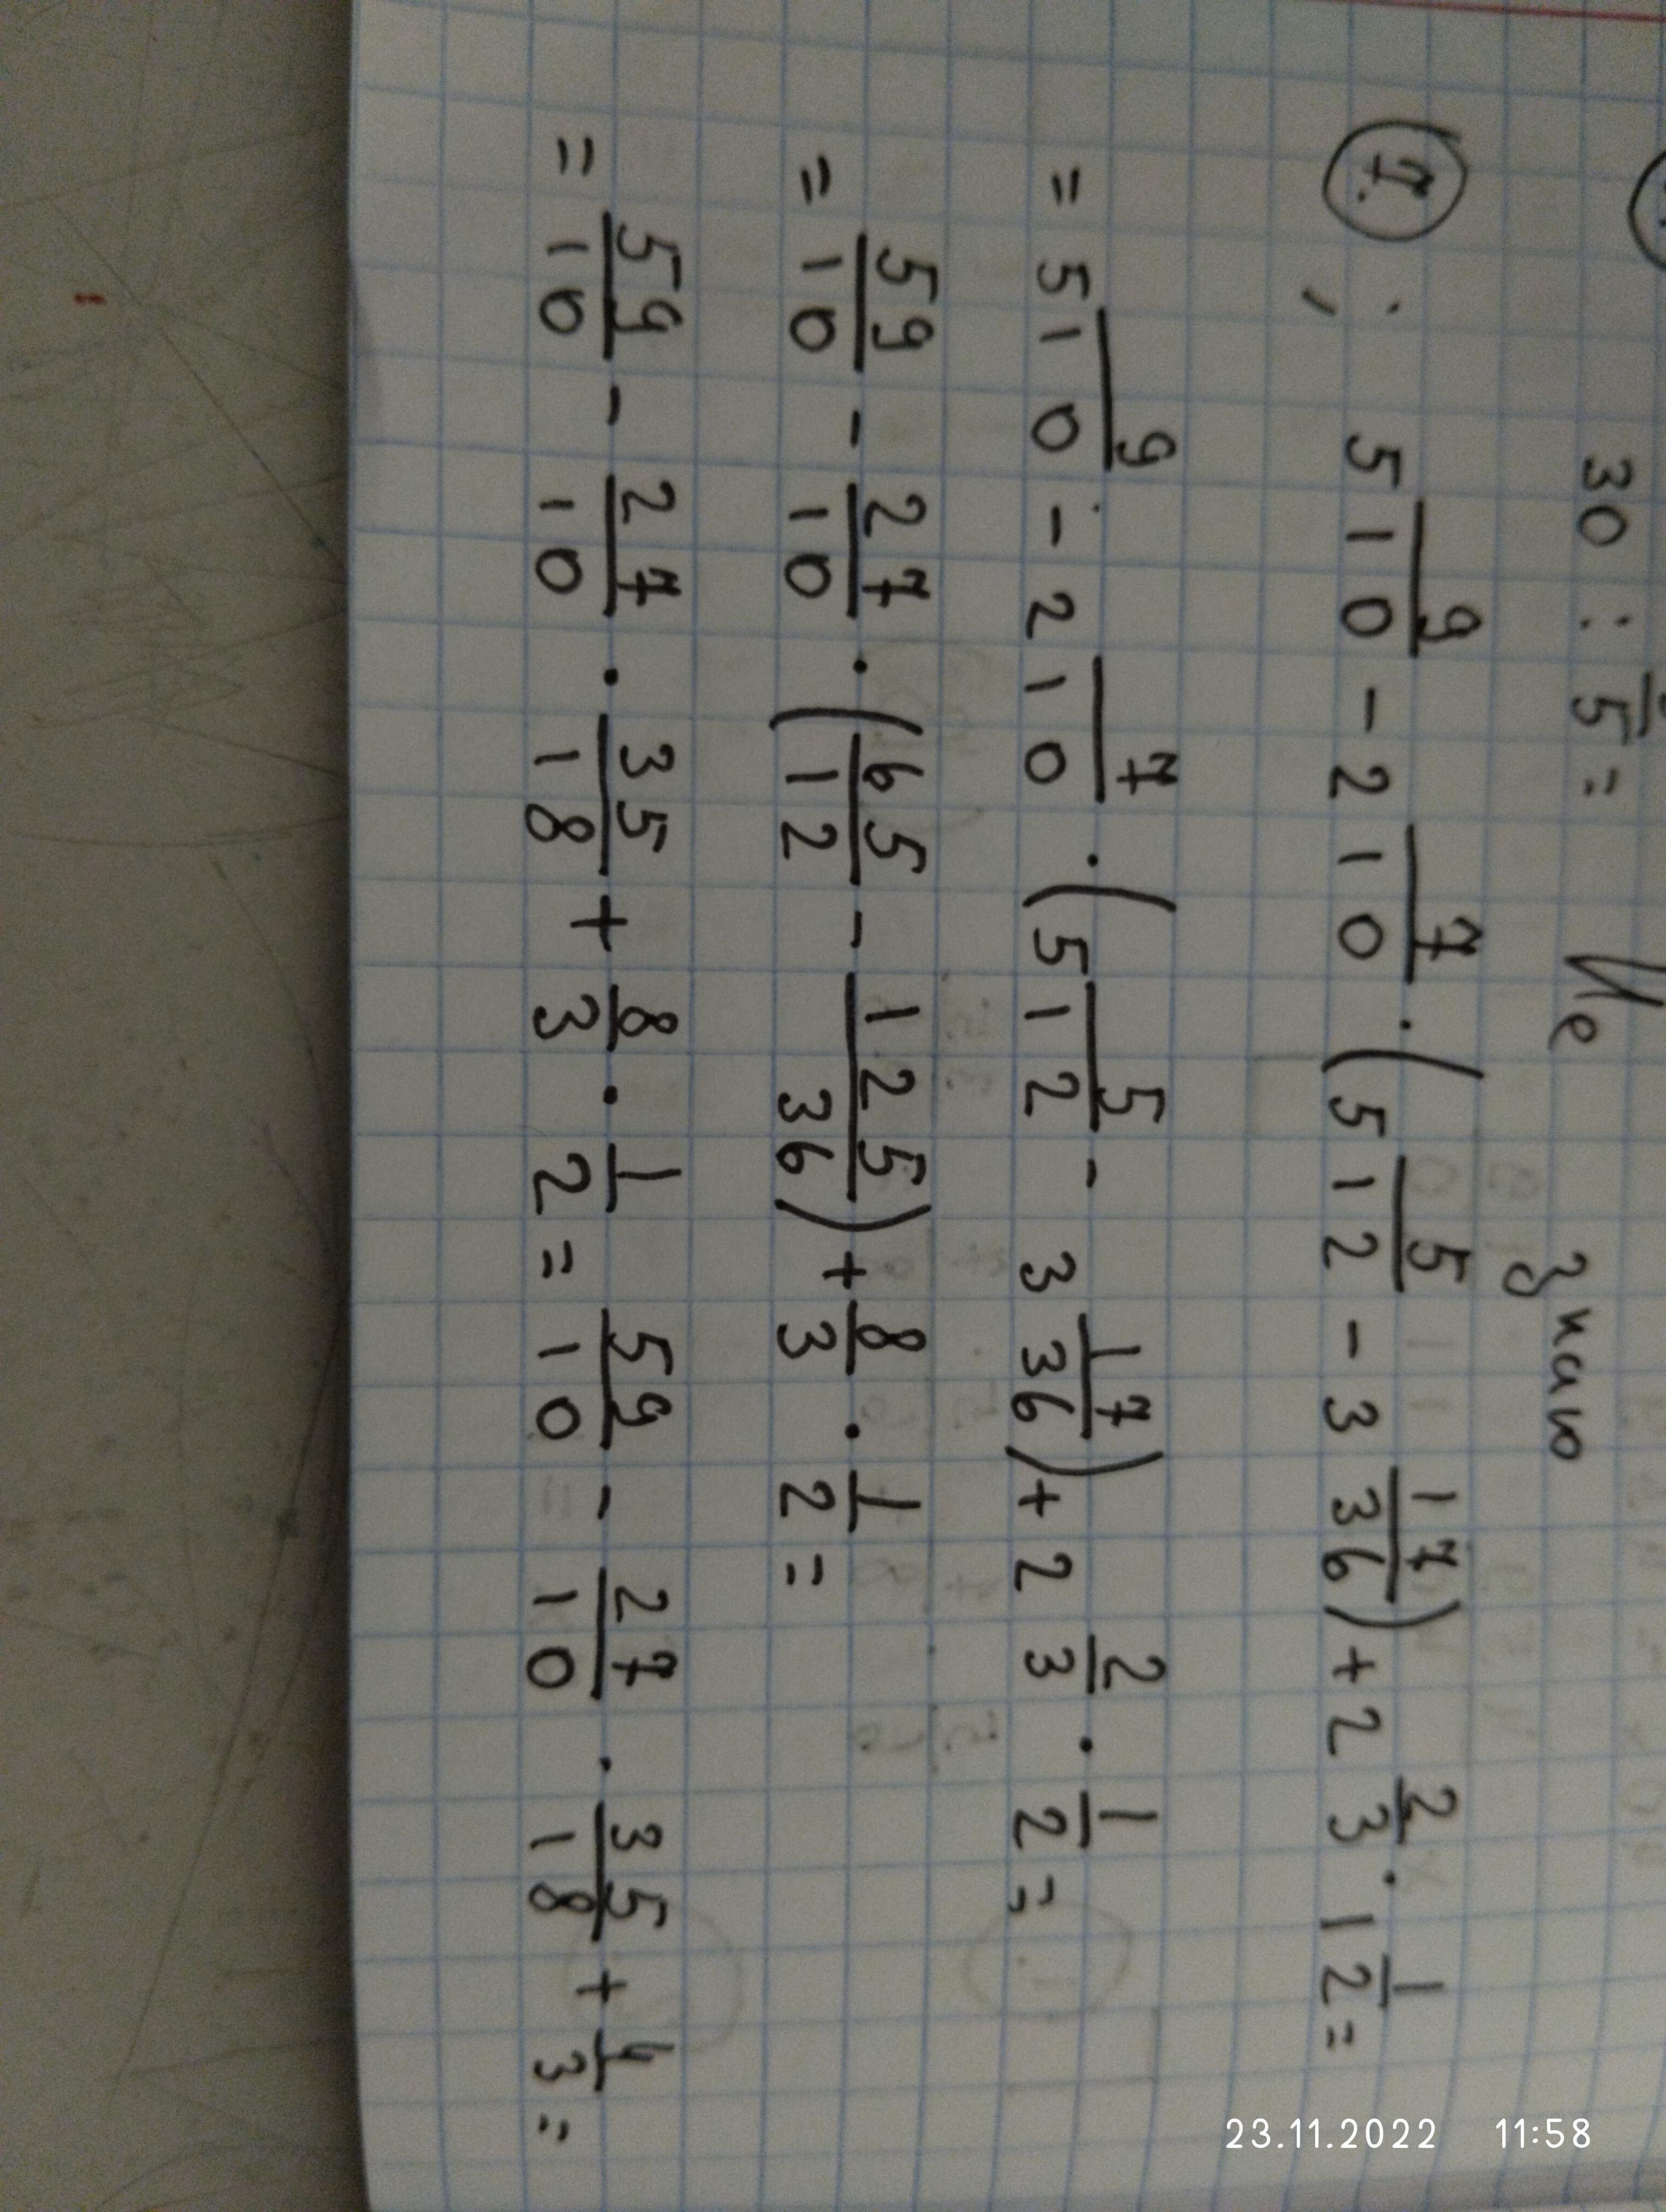 30 : 5 = Не знаю
7. ; 5 9/10 - 2 7/10 · (5 5/12 - 3 17/36) + 2 2/3 · 1 1/2 =
= 5 9/10 - 2 7/10 · (5 5/12 - 3 17/36) + 2 2/3 · 1/2 =
= 59/10 - 27/10 · (65/12 - 125/36) + 8/3 · 1/2 =
= 59/10 - 27/10 · 35/18 + 8/3 · 1/2 = 59/10 - 27/10 · 35/18 + 4/3 =
23.11.2022 11:58